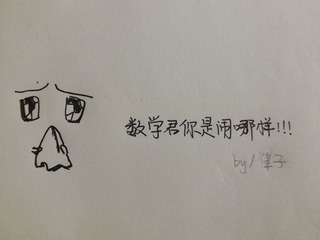 数学君你是闹哪样!!!
by/律子